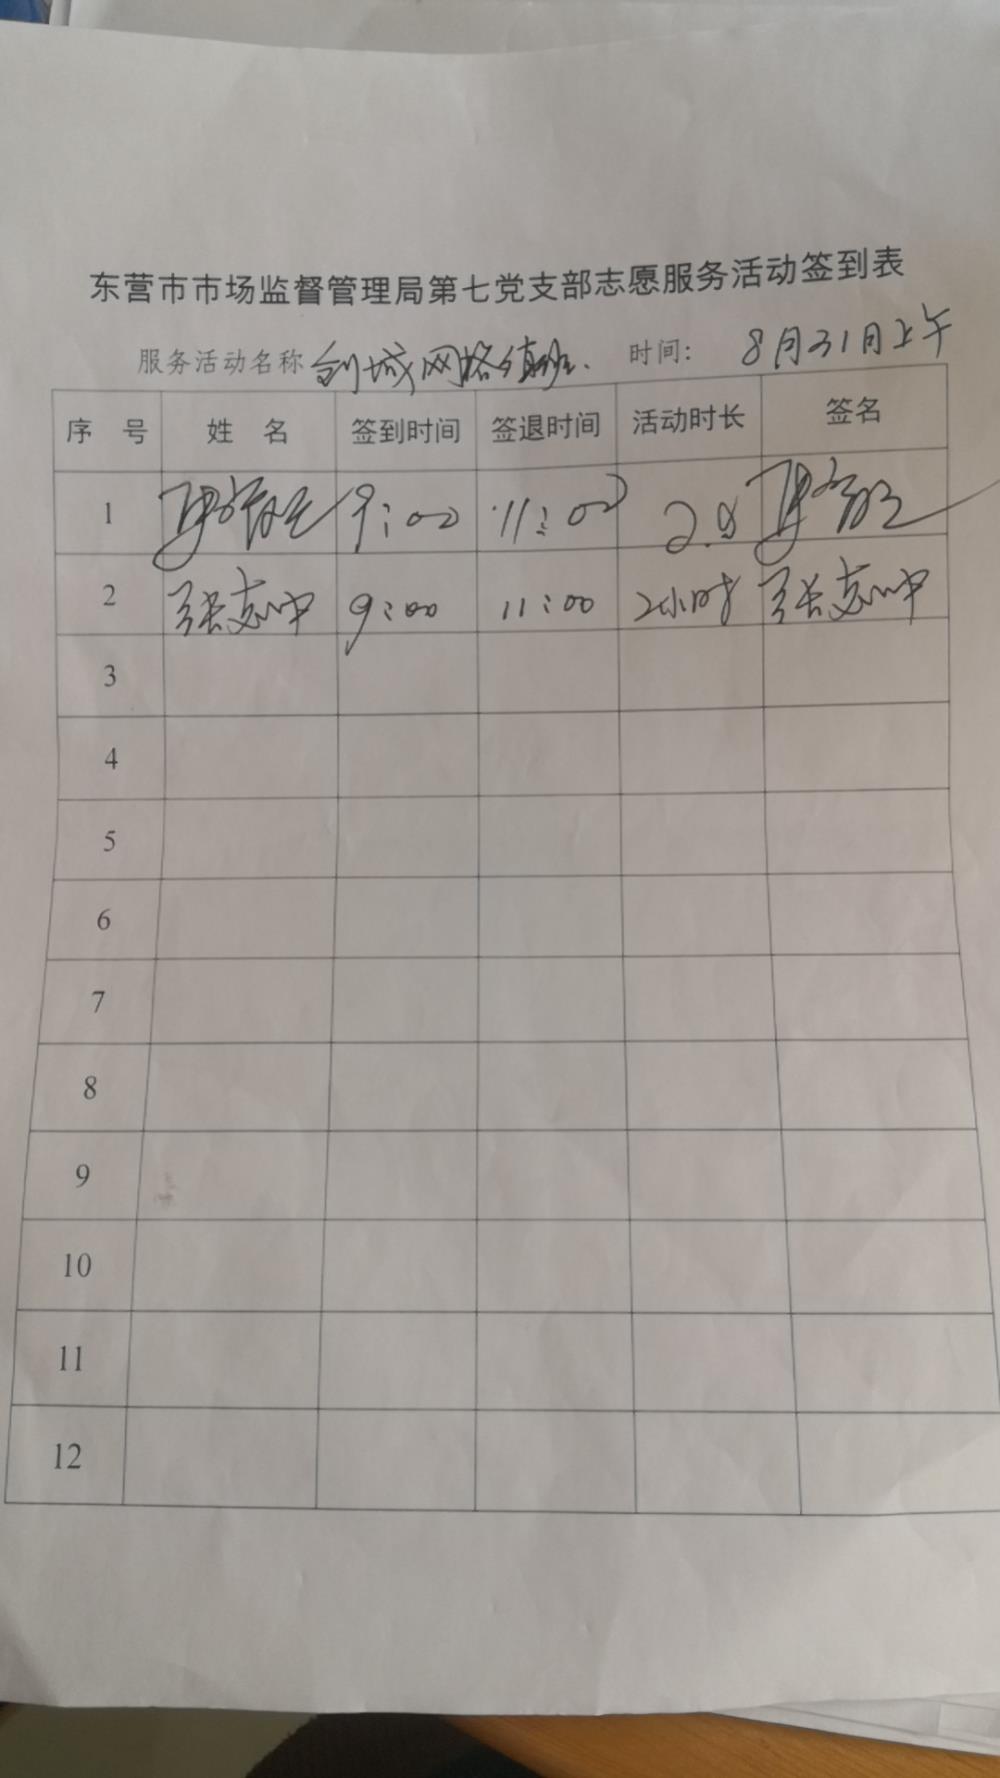 东营市市场监督管理局第七党支部志愿服务活动签到表
服务活动名称 创城网格值班. 时间: 8月31日上午
序 号 姓 名 签到时间 签退时间 活动时长 签名
1 9:00 11:00 2.0
2 张志中 9:00 11:00 2小时 张志中
3
4
5
6
7
8
9
10
11
12